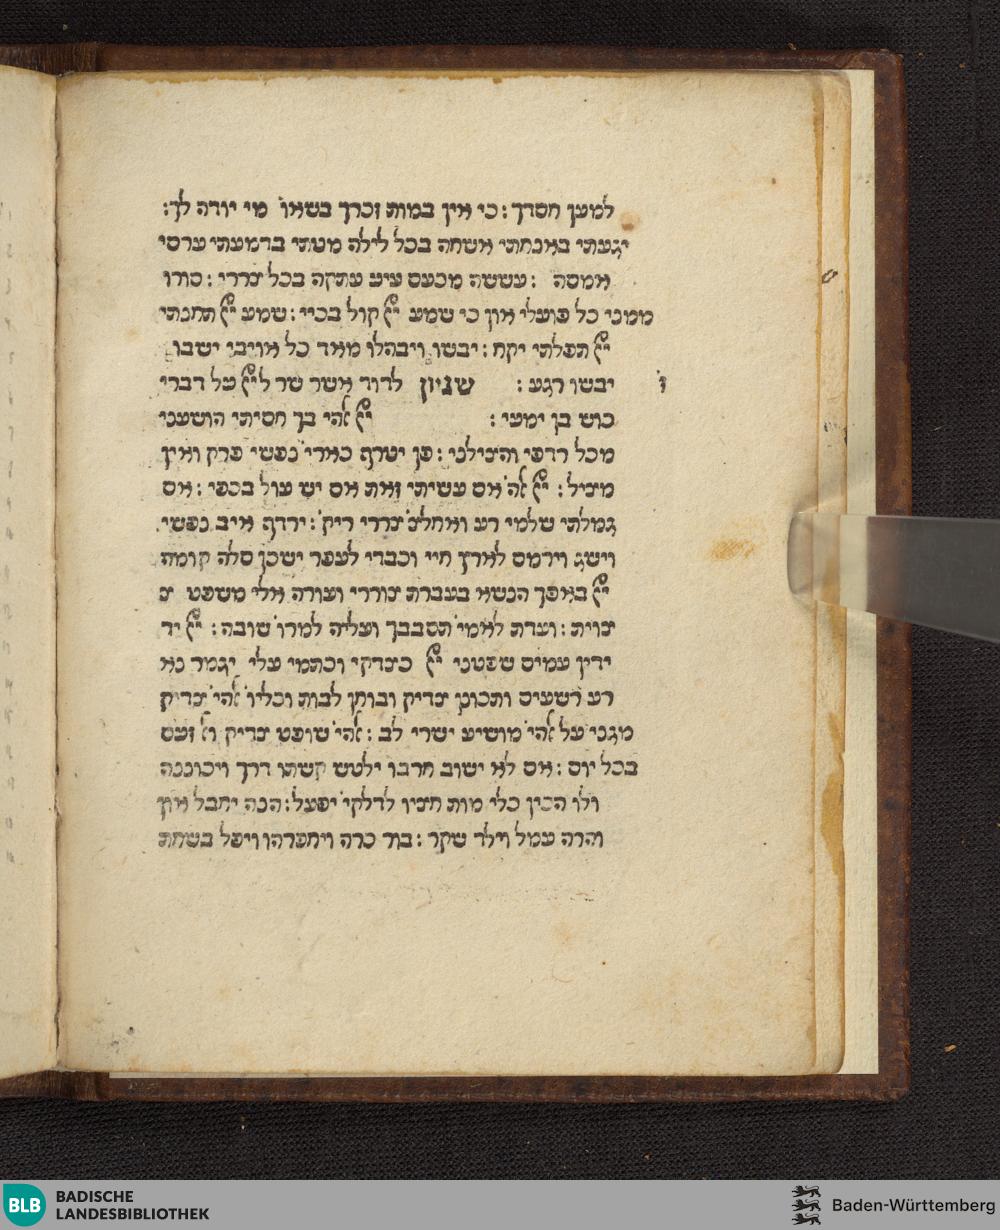 למען חסדך : כי אין במות זכרך בשאו׳ מי יודה לך :
יגעתי באנחתי אשחה בכל לילה מטתי בדמעתי ערסי
אמסה : עששה מכעס עיני עתקה בכל צררי : סורו
ממני כל פועלי און כי שמע ייי קול בכיי : שמע ייי תחנתי
ייי תפלתי יקח : יבשו ויבהלו מאד כל אויבי ישבו
יבשו רגע : שגיון לדוד אשר שר לייי על דברי
ז
כוש בן ימיני : ייי אלהי בך חסיתי הושעני
מכל רדפי והצילני : פן יטרף כארי׳ נפשי פרק ואין
מציל : ייי אלה׳ אם עשיתי זאת אם יש עול בכפי : אם
גמלתי שלמי רע ואחלצ׳ צררי ריק׳ : ירדף איב נפשי
וישג וירמס לארץ חיי וכבדי לעפר ישכן סלה קומה
ייי באפך הנשא בעברת צוררי ועורה אלי משפט צ
צוית : ועדת לאמי׳ תסבבך ועליה למרו׳ שובה : ייי יד
ידין עמים שפטני ייי כצדקי וכתמי עלי יגמר נא
רע רשעים ותכונן צדיק ובוחן לבות וכליו׳ אלהי׳ צדיק
מגני על אלהי׳ מושיע ישרי לב : אלהי׳ שופט צדיק ואל זעם
בכל יום : אם לא ישוב חרבו ילטש קשתו דרך ויכוננה
ולו הכין כלי מות חיציו לדלקי׳ יפעל : הנה יחבל און
והרה עמל וילד שקר : בור כרה ויחפרהו ויפל בשחת
BLB
BADISCHE
LANDESBIBLIOTHEK
Baden-Württemberg